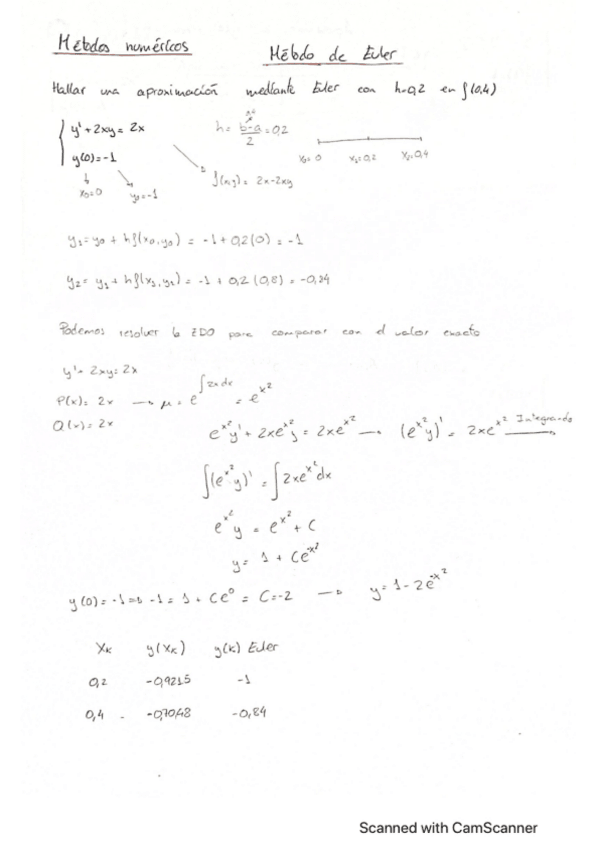 Métodos numéricos
Método de Euler
Hallar una aproximación mediante Euler con h=0,2 en f(0,4)
y' + 2xy = 2x
y(0) = -1
x₀=0
y₀=-1
0,4
h = b-a/2 = 0,2
f(x,y) = 2x-2xy
x₀=0 x₁=0,2 x₂=0,4
y₁ = y₀ + hf(x₀,y₀) = -1 + 0,2(0) = -1
y₂ = y₁ + hf(x₁,y₁) = -1 + 0,2(0,8) = -0,84
Podemos resolver la EDO para comparar con el valor exacto
y' + 2xy = 2x
P(x) = 2x → μ = e^∫2xdx = e^x²
Q(x) = 2x
e^x² y' + 2xe^x² y = 2xe^x² → (e^x² y)' = 2xe^x² Integrando →
∫(e^x² y)' = ∫2xe^x² dx
e^x² y = e^x² + C
y = 1 + Ce^-x²
y(0) = -1 ⇒ -1 = 1 + Ce⁰ = C=-2 → y = 1 - 2e^-x²
Xₖ y(Xₖ) y(k) Euler
0,2 -0,9215 -1
0,4 -0,7048 -0,84
Scanned with CamScanner